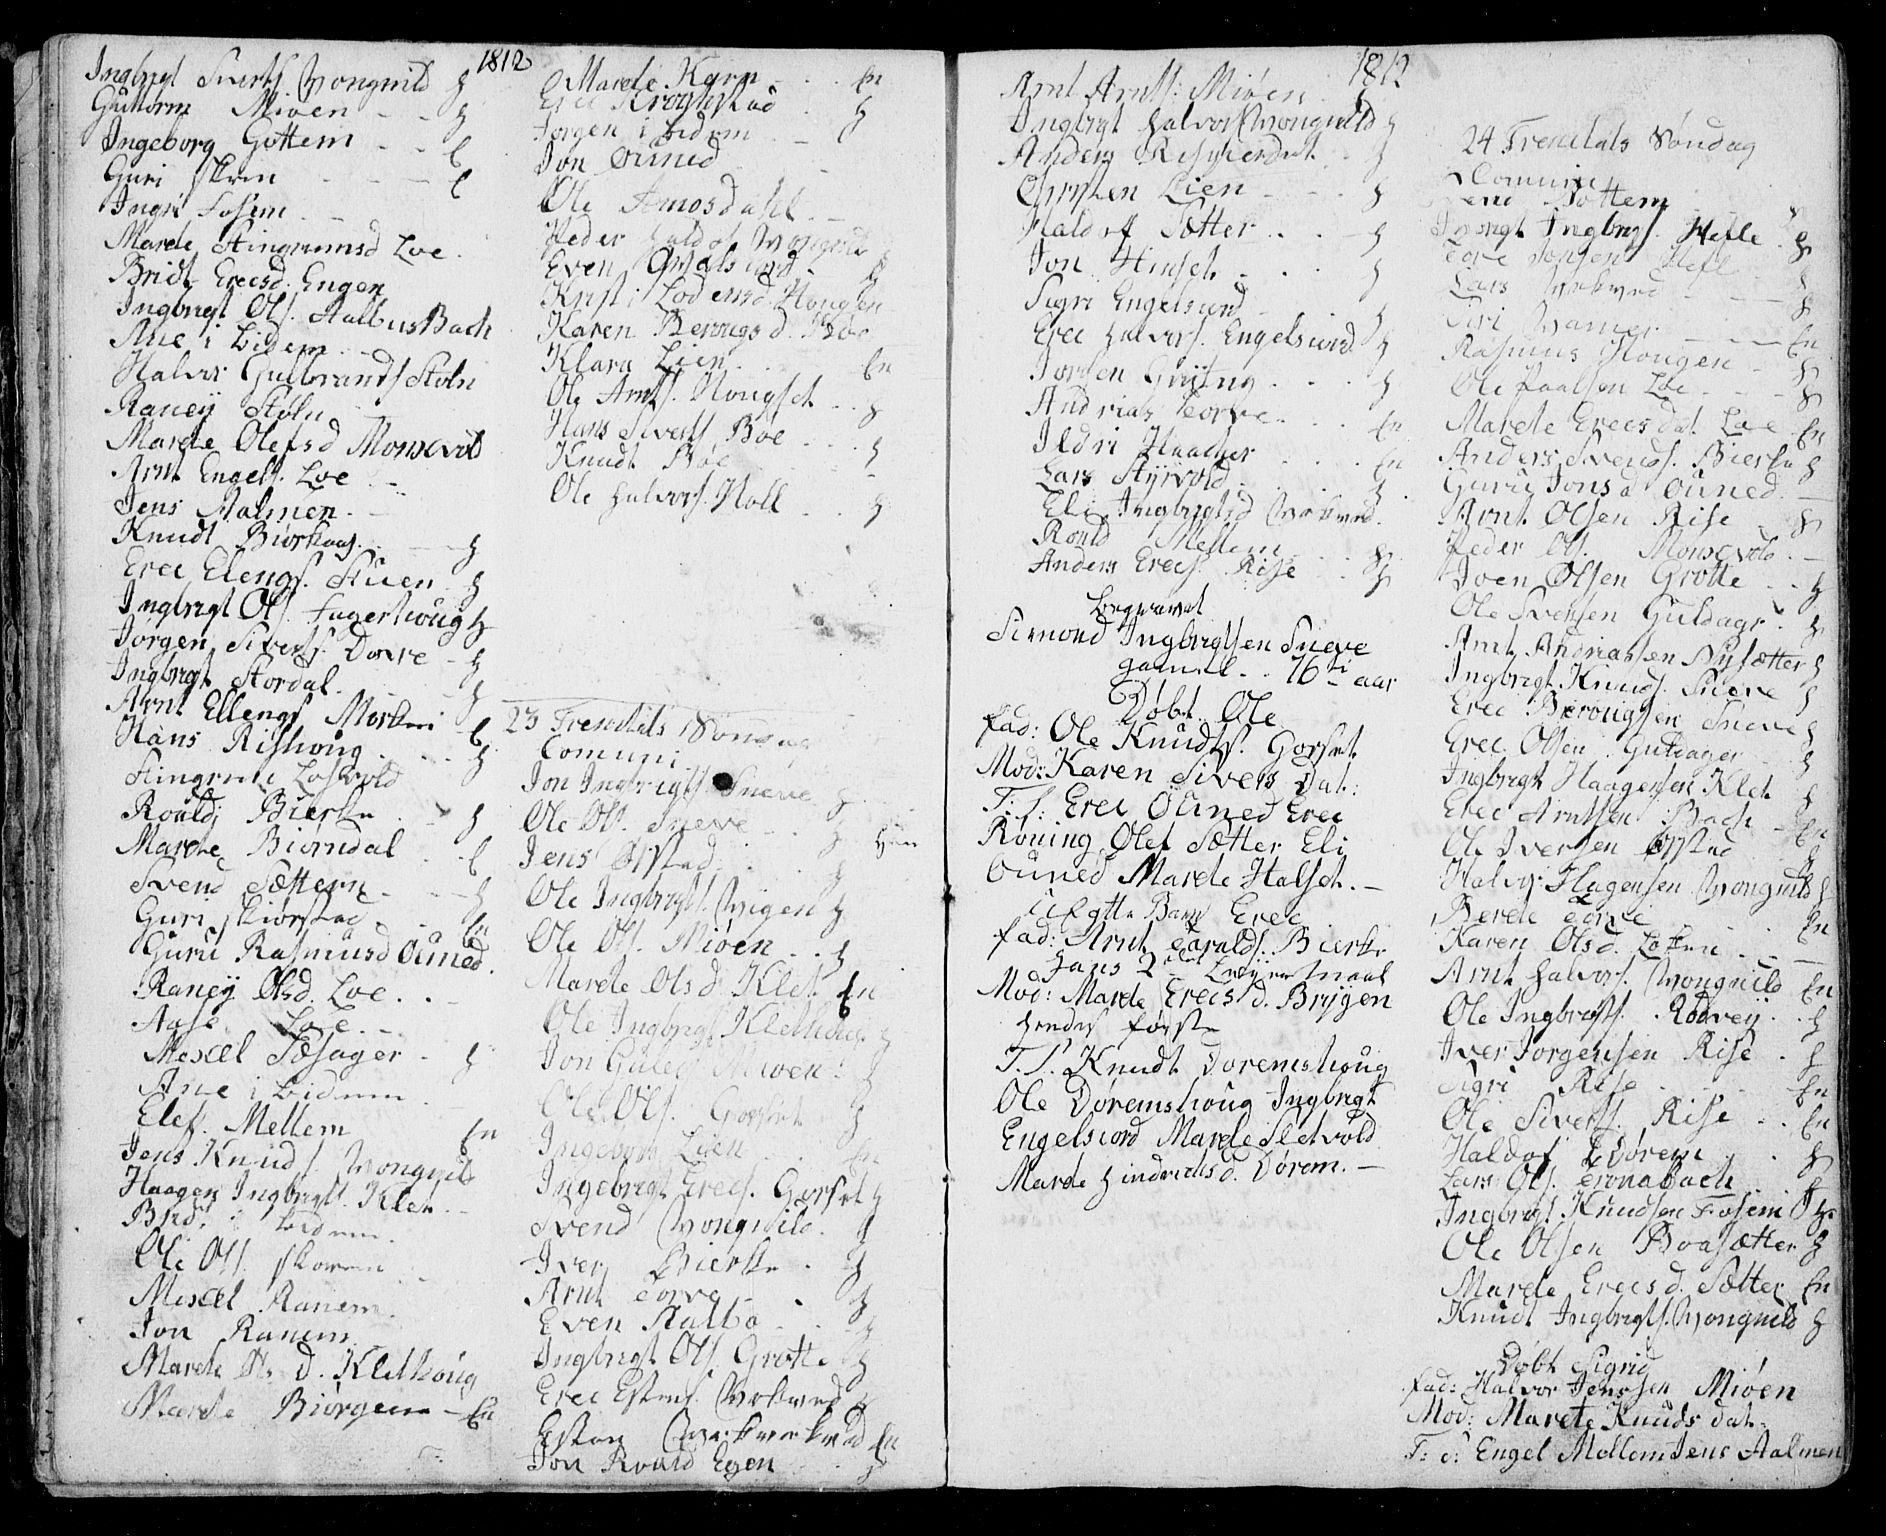 1812
Ingbrigt Siverts. Wongnild h
Guttorm Miøen - - h
Ingeborg Gottem - - E
Guri Skren - - - E
Ingri Fosem - -
Marete Stingrumsd Loe
Bridt Erecsd. Engen
Ingbrigt Ols. Stalbusbach
Ane i Lidem
Halvor Gulbrands Stoln
Raney Stoln
Marete Olefsd Monsevold
Arnt Engels. Loe
Jens Aalmen
Knudt Biørkaas - - h
Erec Elengs. Stuen - h
Ingbrigt Ols. Fagerhoug h
Jørgen Siverts. Dovre - h
Ingbrigt Stordal - - h
Arnt Ellengs. Morken E
Hans Rishoug - - h
Loesvold
Rould Bierke - h
Marete Biørndal - E
Svend Sættern - - h
Guri Skiørstad - En
Guru Rasmusd Ouned
Raney Olsd. Loe - -
Aase Loe -
Mexel Sæsager - h
Ane i Lidem
Elef. Mellem En
Jens Knuds. Wongnild
Haagen Ingbrigts. Klet
Brid. i Lidem
Ole Ols. Skoren
Mexel Ranem
Jon Ranem
Marete Ols. D. Kletthoug
Marete Biørgen - En
Marete Karn - - En
Erec Krogstad - h
Jørgen i Lidem
Jon Ouned
Ole Amosdahl - -
Peder Haldos. Wongnild
Even Engelsiord
Krist: Lodensd. Hougen
Karen Berougsd. Bøe
Klara Lien - - En
Ole Arnts. Hougset - h
Hans Siverts Boe - - h
Knudt Bøe - - h
Ole Halvors. Holl - - h
23 Trenitats Søndag
Comuni
Jon Ingbrigts. Sneve h
Ole Ols. Sneve - - h
Jens Ørstad - - h
Ole Ingbrigts. Wigen h
Ole Ols. Miøen - - h
Marete Olsd. Klet En
Ole Ingbrigts. Kletthoug h
Jon Miøen - h
Ole Ols. Gorset h
Ingeborg Lien - En
Ingebrigt Erecs. Gorset h
Svend Wongnild - h
Iver Bierke - h
Arnt Torve - - h
Even Stalbo - - h
Ingbrigt Ols. Grotte h
Erec Estens. Workved h
Esten Workved En
Jon Rould Egen h
1812
Arnt Arnts. Miøen
Ingbrigt Halvors. Wongnild h
Anders Risgierdet h
Christen Lien - - - h
Haldof Sætter - - - h
Jon Hinseh - - - h
Sigri Engelsiord
Erec Halvors. Engelsiord h
Jørgen Gryting - - - h
Andrias Torve - - En
Ildri Haacher - - En
Lars Styrvold - - h
Eli Ingbrigtsd Workved
Rould Mellem - - h
Anders Erecs. Rise - - h
Begravet
Simond Ingbrigtsen Sneve
gammel - 76 aar
Døbt. Ole
Fad: Ole Knudts. Gorset
Mod: Karen Sivers Dat:
T: f: Erec Ouned Erec
Roning Olef Sætter Eli
Ouned Marete Halset. -
Uegtte Barn Erec
Fad: Arnt Taralds. Bierke
Hans 2det Leyermaal
Mod: Marete Erecs d. Bryggen
hendes første
T. f. Knudt Doremshoug
Ole Døremshoug Ingbrigt
Engelsiord Marete Sletvold
Marete Hindrichsd. Dørem. -
24 Trenitats Søndag
Comuni
Svend Sottem
Ingbrigt Ingbrigts. Hefle h
Tore Jonsen Hefl h
Lars Workved - - h
Siri Wamer - - En
Rasmus Hougen - h
Ole Paalsen Loe - - h
Marete Erecs dat. Loe En
Anders Svends. Bierke h
Guru Jonsd Ouned -
Arnt Olsen Rise - h
Peder Ols. Monsevold -
Joen Olsen Grotte - - h
Ole Iversen Guldager - h
Arnt Andriassen Nysætter h
Ingbrigt Knuds. Sneve h
Erec Berougsen Sneve h
Erec Olsen Guldager h
Ingbrigt Haagensen Klet h
Erec Arntsen Bach - En
Ole Iversen Ørstad h
Halvor Hagensen Wongnild h
Berete Torve - - En
Karen Olsd. Løkken - -
Arnt Halvors. Wongnild En
Ole Ingbrigts. Rodvey - h
Iver Jorgensen Rise - h
Sigri Rise - - - En
Ole Siverts. Rise - - En
Haldof Dørem - h
Lars Ols. Tronabach h
Ingbrigt Knudsen Fosem h
Ole Olsen Boasætter h
Marete Erecs d. Sætter En
Knudt Ingbrigts. Wongnild h
Døbt Sigrid
Fad: Halvor Jenssen Miøen
Mod: Marete Knuds dat.
T: f: Engel Mellem Jens Aalmen